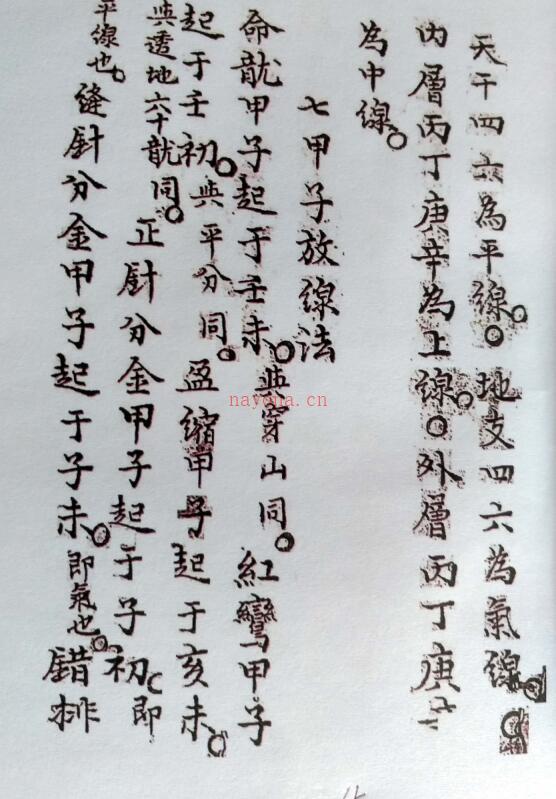 天干四六為平線。地支四六為氣線。
內層丙丁庚辛為上線。外層丙丁庚
為中線。
七甲子放線法
命龍甲子起于壬未。與穿山同。紅鸞甲子
起于壬初。與平分同。盈縮甲子起于亥未。
與透地六十龍同。正針分金甲子起于子初。即
平線也。縫針分金甲子起于子未。即氣也。錯排
nayona.cn